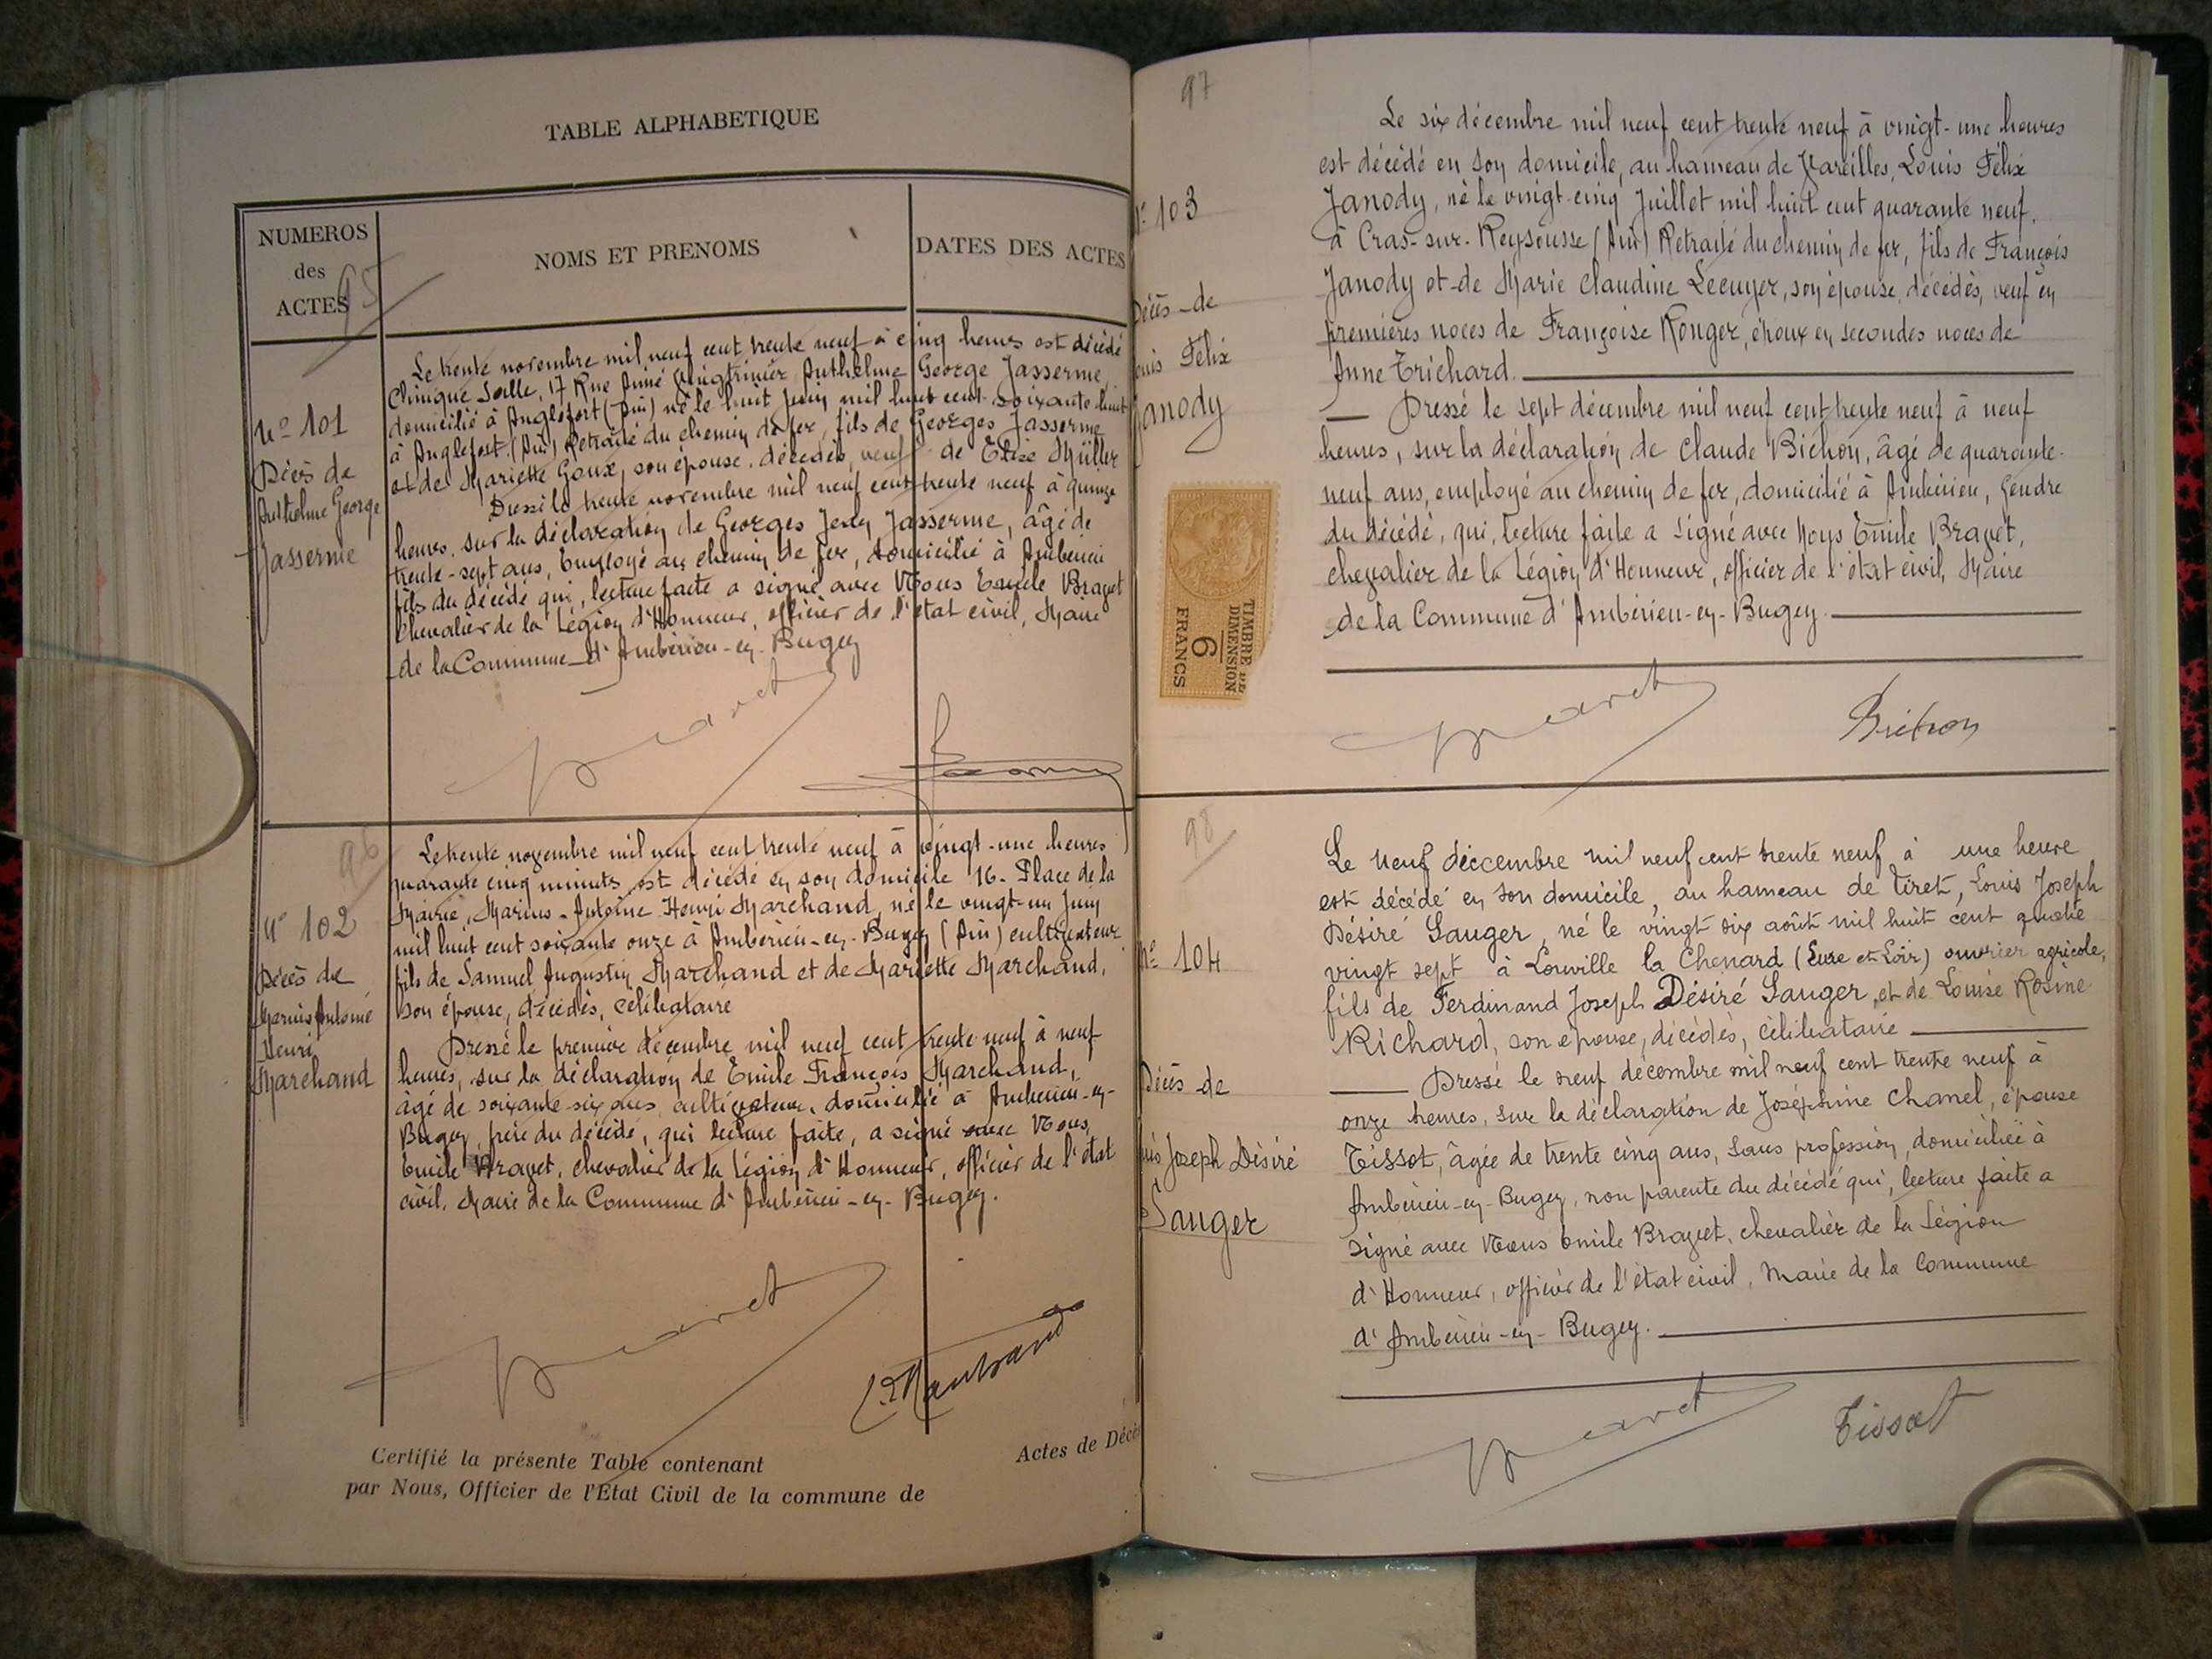 TABLE ALPHABETIQUE
NUMEROS
des
ACTES
95
NOMS ET PRENOMS
DATES DES ACTES
N° 101
Décès de
Anthelme George
Jasserme
Le trente novembre mil neuf cent trente neuf à cinq heures est décédé
Clinique Salle, 17 Rue Aimé Vingtrinier Anthelme George Jasserme,
domicilié à Anglefort (Ain) né le huit Juin mil huit cent soixante huit
à Anglefort (Ain) Retraité du chemin de fer, fils de Georges Jasserme
et de Mariette Goux, son épouse, décédés, veuf de Elise Müller
Dressé le trente novembre mil neuf cent trente neuf à quinze
heures, sur la déclaration de Georges Jean Jasserme, âgé de
trente-sept ans, Employé au chemin de fer, domicilié à Ambérieu
fils du décédé qui, lecture faite a signé avec Nous Emile Bravet
Chevalier de la Légion d'Honneur, officier de l'état civil, Maire
de la Commune d'Ambérieu-en-Bugey
Bravet
96
N° 102
Décès de
Marius Antoine
Henri
Marchand
Le trente novembre mil neuf cent trente neuf à vingt-une heures
quarante cinq minutes est décédé en son domicile 16. Place de la
Mairie, Marius-Antoine Henri Marchand, né le vingt-un Juin
mil huit cent soixante onze à Ambérieu-en-Bugey (Ain) cultivateur
fils de Samuel Augustin Marchand et de Mariette Marchand,
son épouse, décédés, célibataire
Dressé le premier décembre mil neuf cent trente neuf à neuf
heures, sur la déclaration de Emile François Marchand,
âgé de soixante-six ans, cultivateur, domicilié à Ambérieu-en-
Bugey, frère du décédé, qui lecture faite, a signé avec Nous,
Emile Bravet, chevalier de la Légion d'Honneur, officier de l'état
civil, Maire de la Commune d'Ambérieu-en-Bugey.
Bravet
E. Marchand
Certifié la présente Table contenant
Actes de Décès
par Nous, Officier de l'Etat Civil de la commune de
97
N° 103
Décès de
Louis Félix
Janody
TIMBRE DE
DIMENSION
6
FRANCS
Le six décembre mil neuf cent trente neuf à vingt-une heures
est décédé en son domicile, au hameau de Vareilles, Louis Félix
Janody, né le vingt-cinq Juillet mil huit cent quarante neuf,
à Cras-sur-Reyssousse (Ain) Retraité du chemin de fer, fils de François
Janody et de Marie Claudine Lecuyer, son épouse, décédés, veuf en
premières noces de Françoise Ronger, époux en secondes noces de
Anne Trichard.
Dressé le sept décembre mil neuf cent trente neuf à neuf
heures, sur la déclaration de Claude Bichon, âgé de quarante-
neuf ans, employé au chemin de fer, domicilié à Ambérieu, gendre
du décédé, qui, lecture faite a signé avec Nous Emile Bravet,
chevalier de la Légion d'Honneur, officier de l'état civil, Maire
de la Commune d'Ambérieu-en-Bugey.
Bravet
Bichon
98
N° 104
Décès de
Louis Joseph Désiré
Sauger
Le neuf déccembre mil neuf cent trente neuf à une heure
est décédé en son domicile, au hameau de Tiret, Louis Joseph
Désiré Sauger, né le vingt six août mil huit cent quatre
vingt sept à Louville la Chenard (Eure et Loir) ouvrier agricole,
fils de Ferdinand Joseph Désiré Sauger, et de Louise Rosine
Richard, son épouse, décédés, célibataire
Dressé le neuf décembre mil neuf cent trente neuf à
onze heures, sur la déclaration de Joséphine Chanel, épouse
Tissot, âgée de trente cinq ans, sans profession, domiciliée à
Ambérieu-en-Bugey, non parente du décédé qui, lecture faite a
signé avec Nous Emile Bravet, chevalier de la Légion
d'Honneur, officier de l'état civil, Maire de la Commune
d'Ambérieu-en-Bugey.
Bravet
Tissot